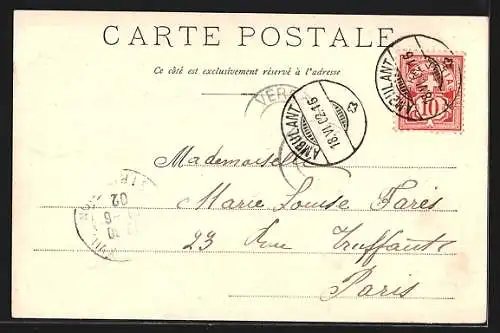 CARTE POSTALE
Ce côté est exclusivement réservé à l'adresse
AMBULANT
10
VERS
AMBULANT
18.VI.02.-15
Mademoiselle
Marie Louise Faris
23 Rue Truffaut
Paris
02